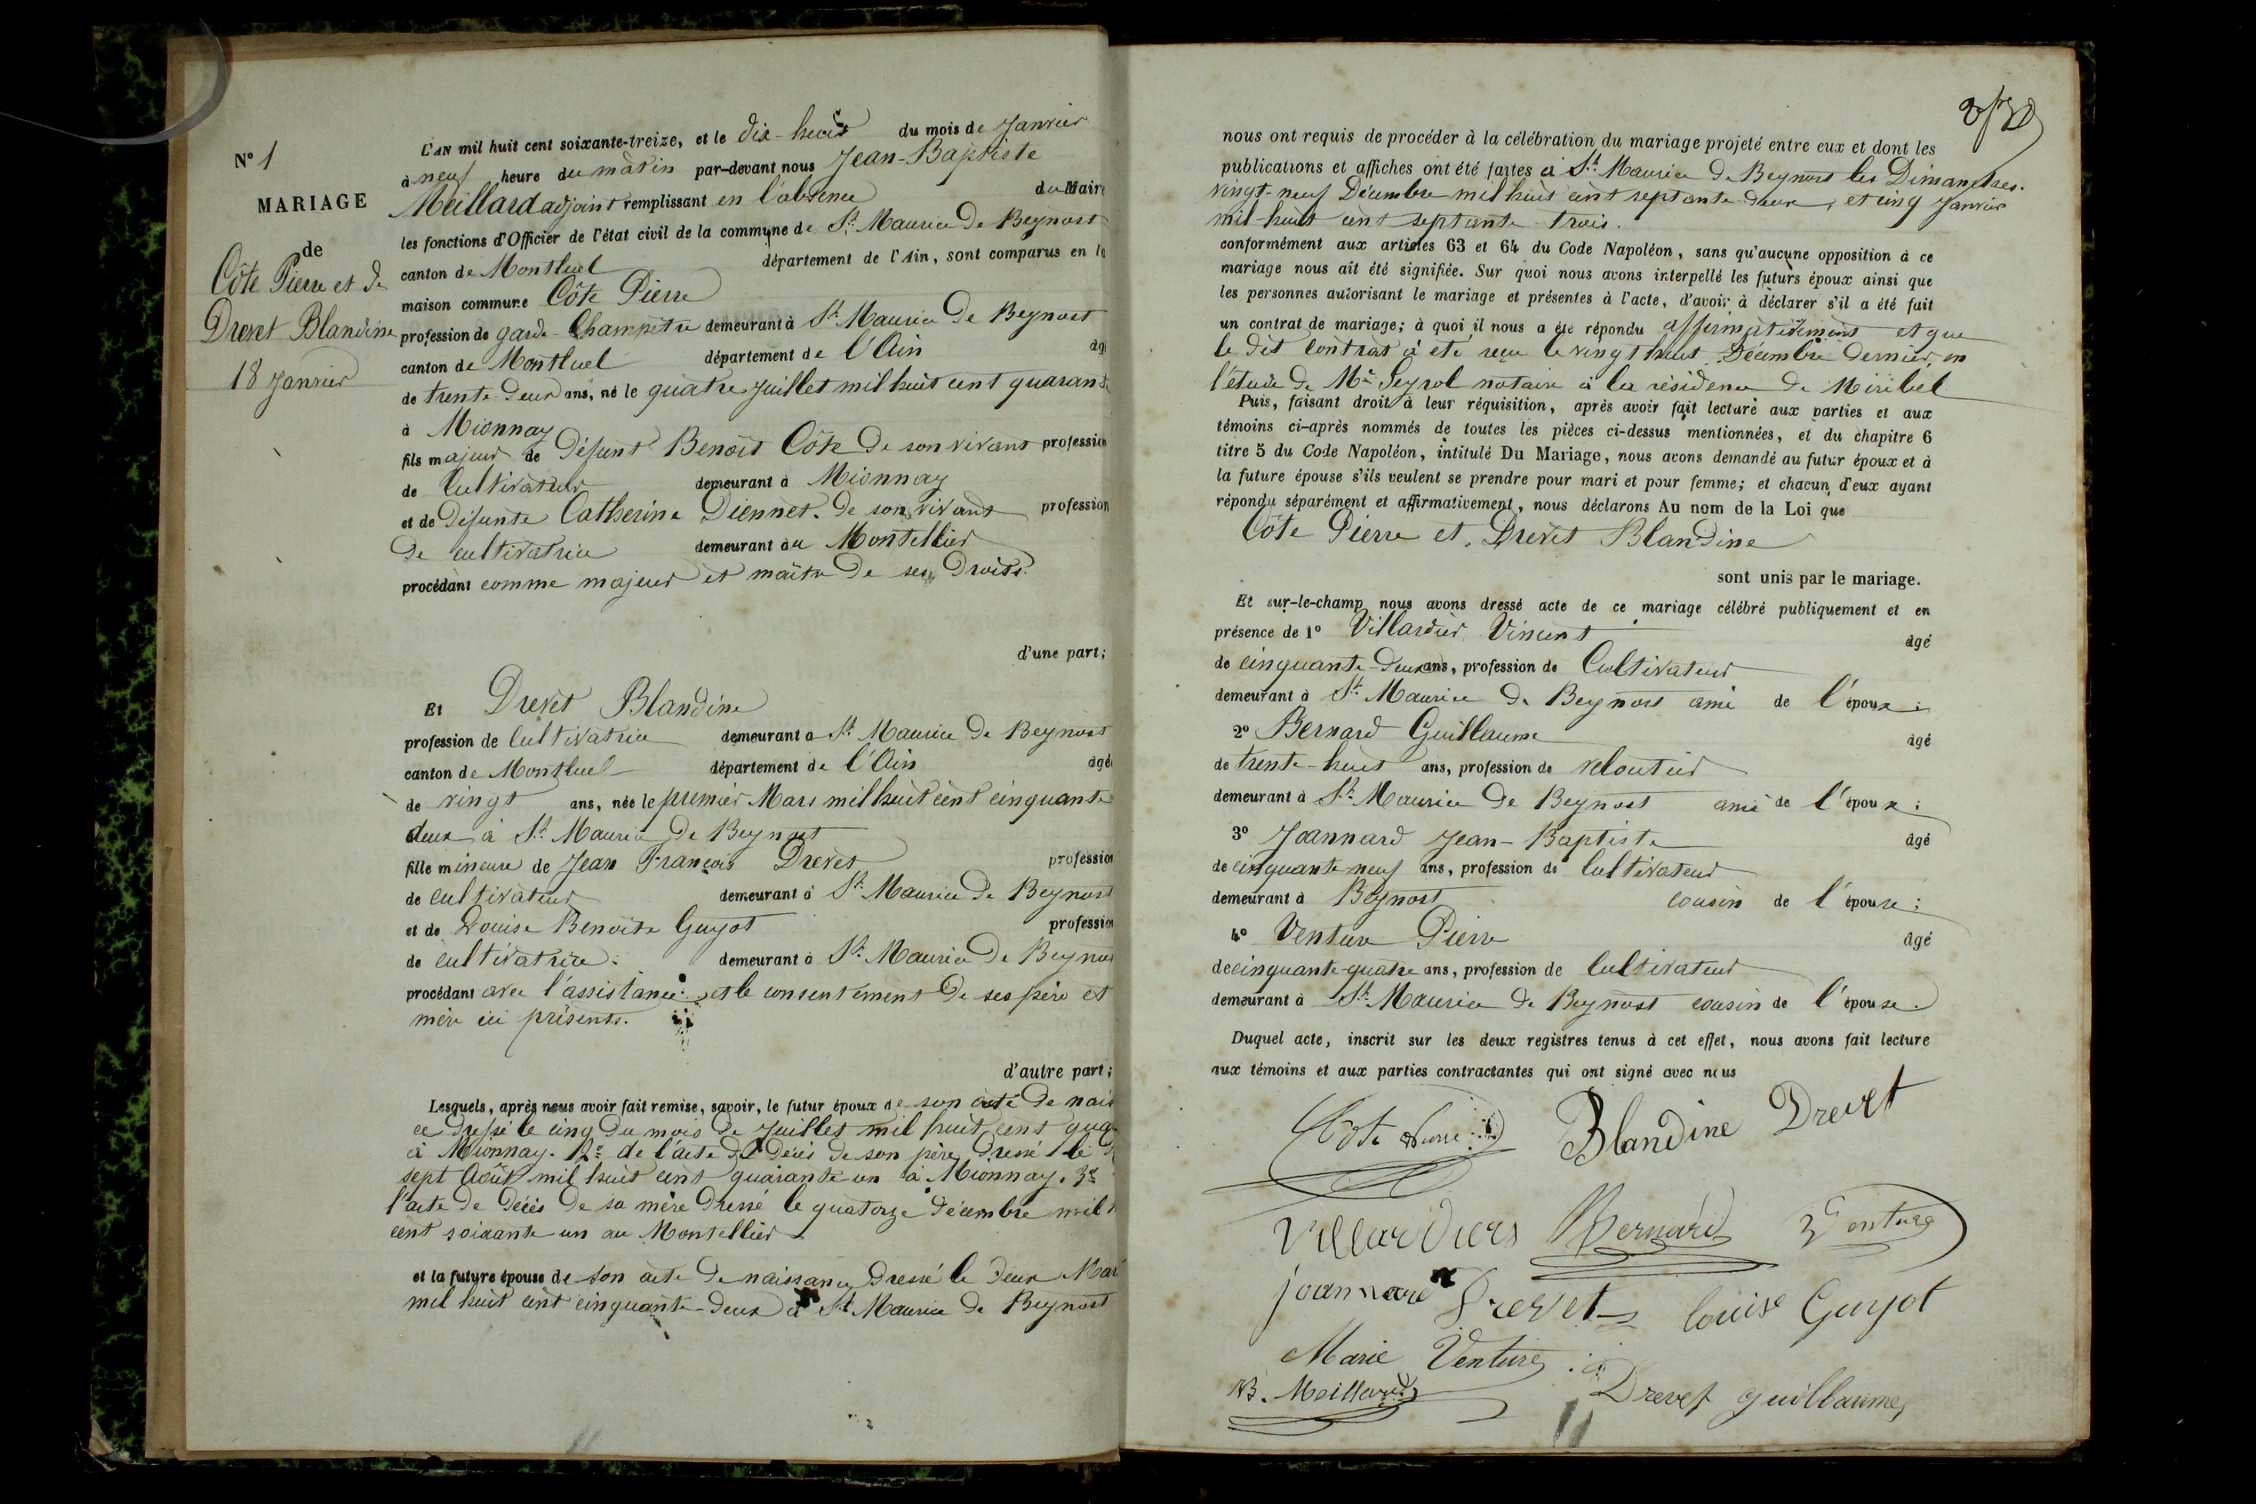 N° 1
MARIAGE
de
Côte Pierre et de
Drevet Blandine
18 Janvier
L'AN mil huit cent soixante-treize, et le dix-huit du mois de Janvier
à neuf heure du matin par-devant nous Jean-Baptiste
Meillard adjoint remplissant en l'absence du Maire
les fonctions d'Officier de l'état civil de la commune de St. Maurice de Beynost
canton de Montluel département de l'Ain, sont comparus en la
maison commune Côte Pierre
profession de garde-Champêtre demeurant à St. Maurice de Beynost
canton de Montluel département de l'Ain âgé
de trente-deux ans, né le quatre Juillet mil huit cent quarante
à Mionnay
fils majeur de défunt Benoît Côte de son vivant profession
de Cultivateur demeurant à Mionnay
et de Défunte Catherine Diennet. de son vivant profession
de cultivatrice demeurant au Montellier
procédant comme majeur et maître de ses droits.
d'une part;
Et Drevet Blandine
profession de Cultivatrice demeurant à St. Maurice de Beynost
canton de Montluel département de l'Ain âgée
de vingt ans, née le premier Mars mil huit cent cinquante
deux à St. Maurice de Beynost
fille mineure de Jean François Drevet profession
de cultivateur demeurant à St. Maurice de Beynost
et de Louise Benoîte Guyot profession
de cultivatrice. demeurant à St. Maurice de Beynost
procédant avec l'assistance et le consentement de ses père et
mère ici présents.
d'autre part;
Lesquels, après nous avoir fait remise, savoir, le futur époux de son acte de nais
ce dressé le cinq du mois de Juillet mil huit cent qua
à Mionnay. 2° de l'acte de Décès de son père dressé le
sept Août mil huit cent quarante un à Mionnay. 3°
l'acte de Décès de sa mère dressé le quatorze décembre mil
cent soixante un au Montellier
et la future épouse de son acte de naissance dressé le deux Mar
mil huit cent cinquante-deux à St. Maurice de Beynost
nous ont requis de procéder à la célébration du mariage projeté entre eux et dont les
publications et affiches ont été faites à St. Maurice de Beynost les Dimanches
vingt-neuf Décembre mil huit cent septante-deux, et cinq Janvier
mil huit cent septante-trois.
conformément aux articles 63 et 64 du Code Napoléon, sans qu'aucune opposition à ce
mariage nous ait été signifiée. Sur quoi nous avons interpellé les futurs époux ainsi que
les personnes autorisant le mariage et présentes à l'acte, d'avoir à déclarer s'il a été fait
un contrat de mariage; à quoi il nous a été répondu affirmativement et que
le dit contrat a été reçu le vingt huit Décembre dernier, en
l'étude de Me Seyrol notaire à la résidence de Miribel
Puis, faisant droit à leur réquisition, après avoir fait lecture aux parties et aux
témoins ci-après nommés de toutes les pièces ci-dessus mentionnées, et du chapitre 6
titre 5 du Code Napoléon, intitulé Du Mariage, nous avons demandé au futur époux et à
la future épouse s'ils veulent se prendre pour mari et pour femme; et chacun d'eux ayant
répondu séparément et affirmativement, nous déclarons Au nom de la Loi que
Côte Pierre et Drevet Blandine
sont unis par le mariage.
Et sur-le-champ nous avons dressé acte de ce mariage célébré publiquement et en
présence de 1° Villardier Vincent âgé
de cinquante-deux ans, profession de Cultivateur
demeurant à St. Maurice de Beynost ami de l'époux;
2° Bernard Guillaume âgé
de trente-huit ans, profession de veloutier
demeurant à St. Maurice de Beynost ami de l'époux;
3° Joannard Jean-Baptiste âgé
de cinquante neuf ans, profession de Cultivateur
demeurant à Beynost cousin de l'épouse;
4° Venture Pierre âgé
de cinquante-quatre ans, profession de Cultivateur
demeurant à St. Maurice de Beynost cousin de l'épouse.
Duquel acte, inscrit sur les deux registres tenus à cet effet, nous avons fait lecture
aux témoins et aux parties contractantes qui ont signé avec nous
Cote Pierre Blandine Drevet
Villardiers Bernard Venture
joannard Drevet louise Guyot
Marie Venture
JB. Meillard Drevet guillaume